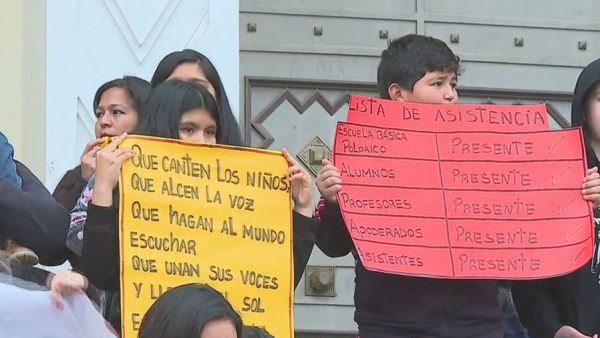 QUE CANTEN LOS NIÑOS,
QUE ALCEN LA VOZ
QUE HAGAN AL MUNDO
ESCUCHAR
QUE UNAN SUS VOCES
SOL
LISTA DE ASISTENCIA
ESCUELA BÁSICA
POLPAICO PRESENTE
ALUMNOS PRESENTE
PROFESORES PRESENTE
APODERADOS PRESENTE
ASISTENTES PRESENTE